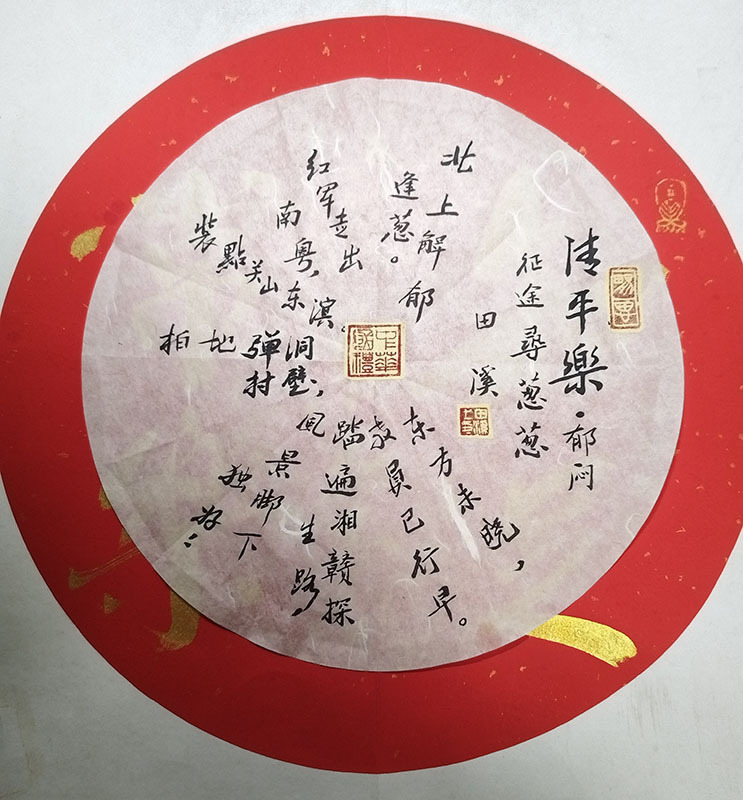 清平樂·郁闷
征途尋蔥蔥
田溪
东方未晓，
教員已行早。
踏遍湘赣探
生路，
风景脚下
独好
弹
洞壁，
地
柏
装點关山东滨。
红军走出
南粤，
北上解郁
逢蔥。
中华
國禮